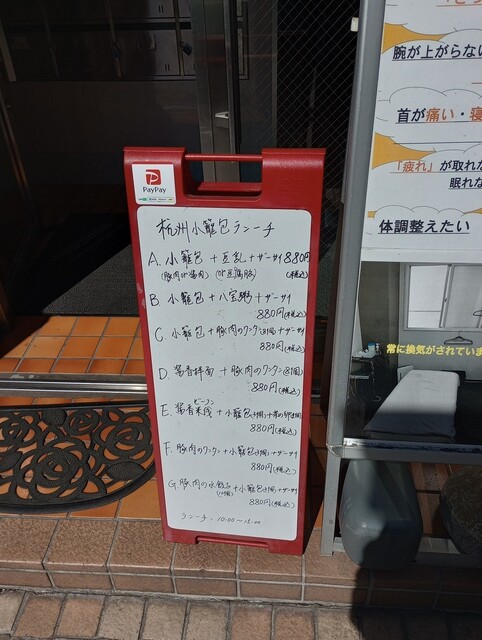 PayPay
杭州小籠包ランチ
A. 小籠包 + 豆乳 + ザーサイ 880円
(豚肉or鶏肉) (or豆腐脳) (税込)
B. 小籠包 + 八宝粥 + ザーサイ
880円(税込)
C. 小籠包 + 豚肉のワンタン(8個) + ザーサイ
880円(税込)
D. 葱香拌面 + 豚肉のワンタン(8個)
880円(税込)
ビーフン
E. 葱香米线 + 小籠包
880円(税込)
F. 豚肉のワンタン + 小籠包 + ザーサイ
880円(税込)
G. 豚肉の水餃子 + 小籠包 + ザーサイ
(10個)
880円(税込)
ランチ: 10:00〜15:00
腕が上がらない
首が痛い・寝
「疲れ」が取れな
眠れな
体調整えたい
常に換気がされていま